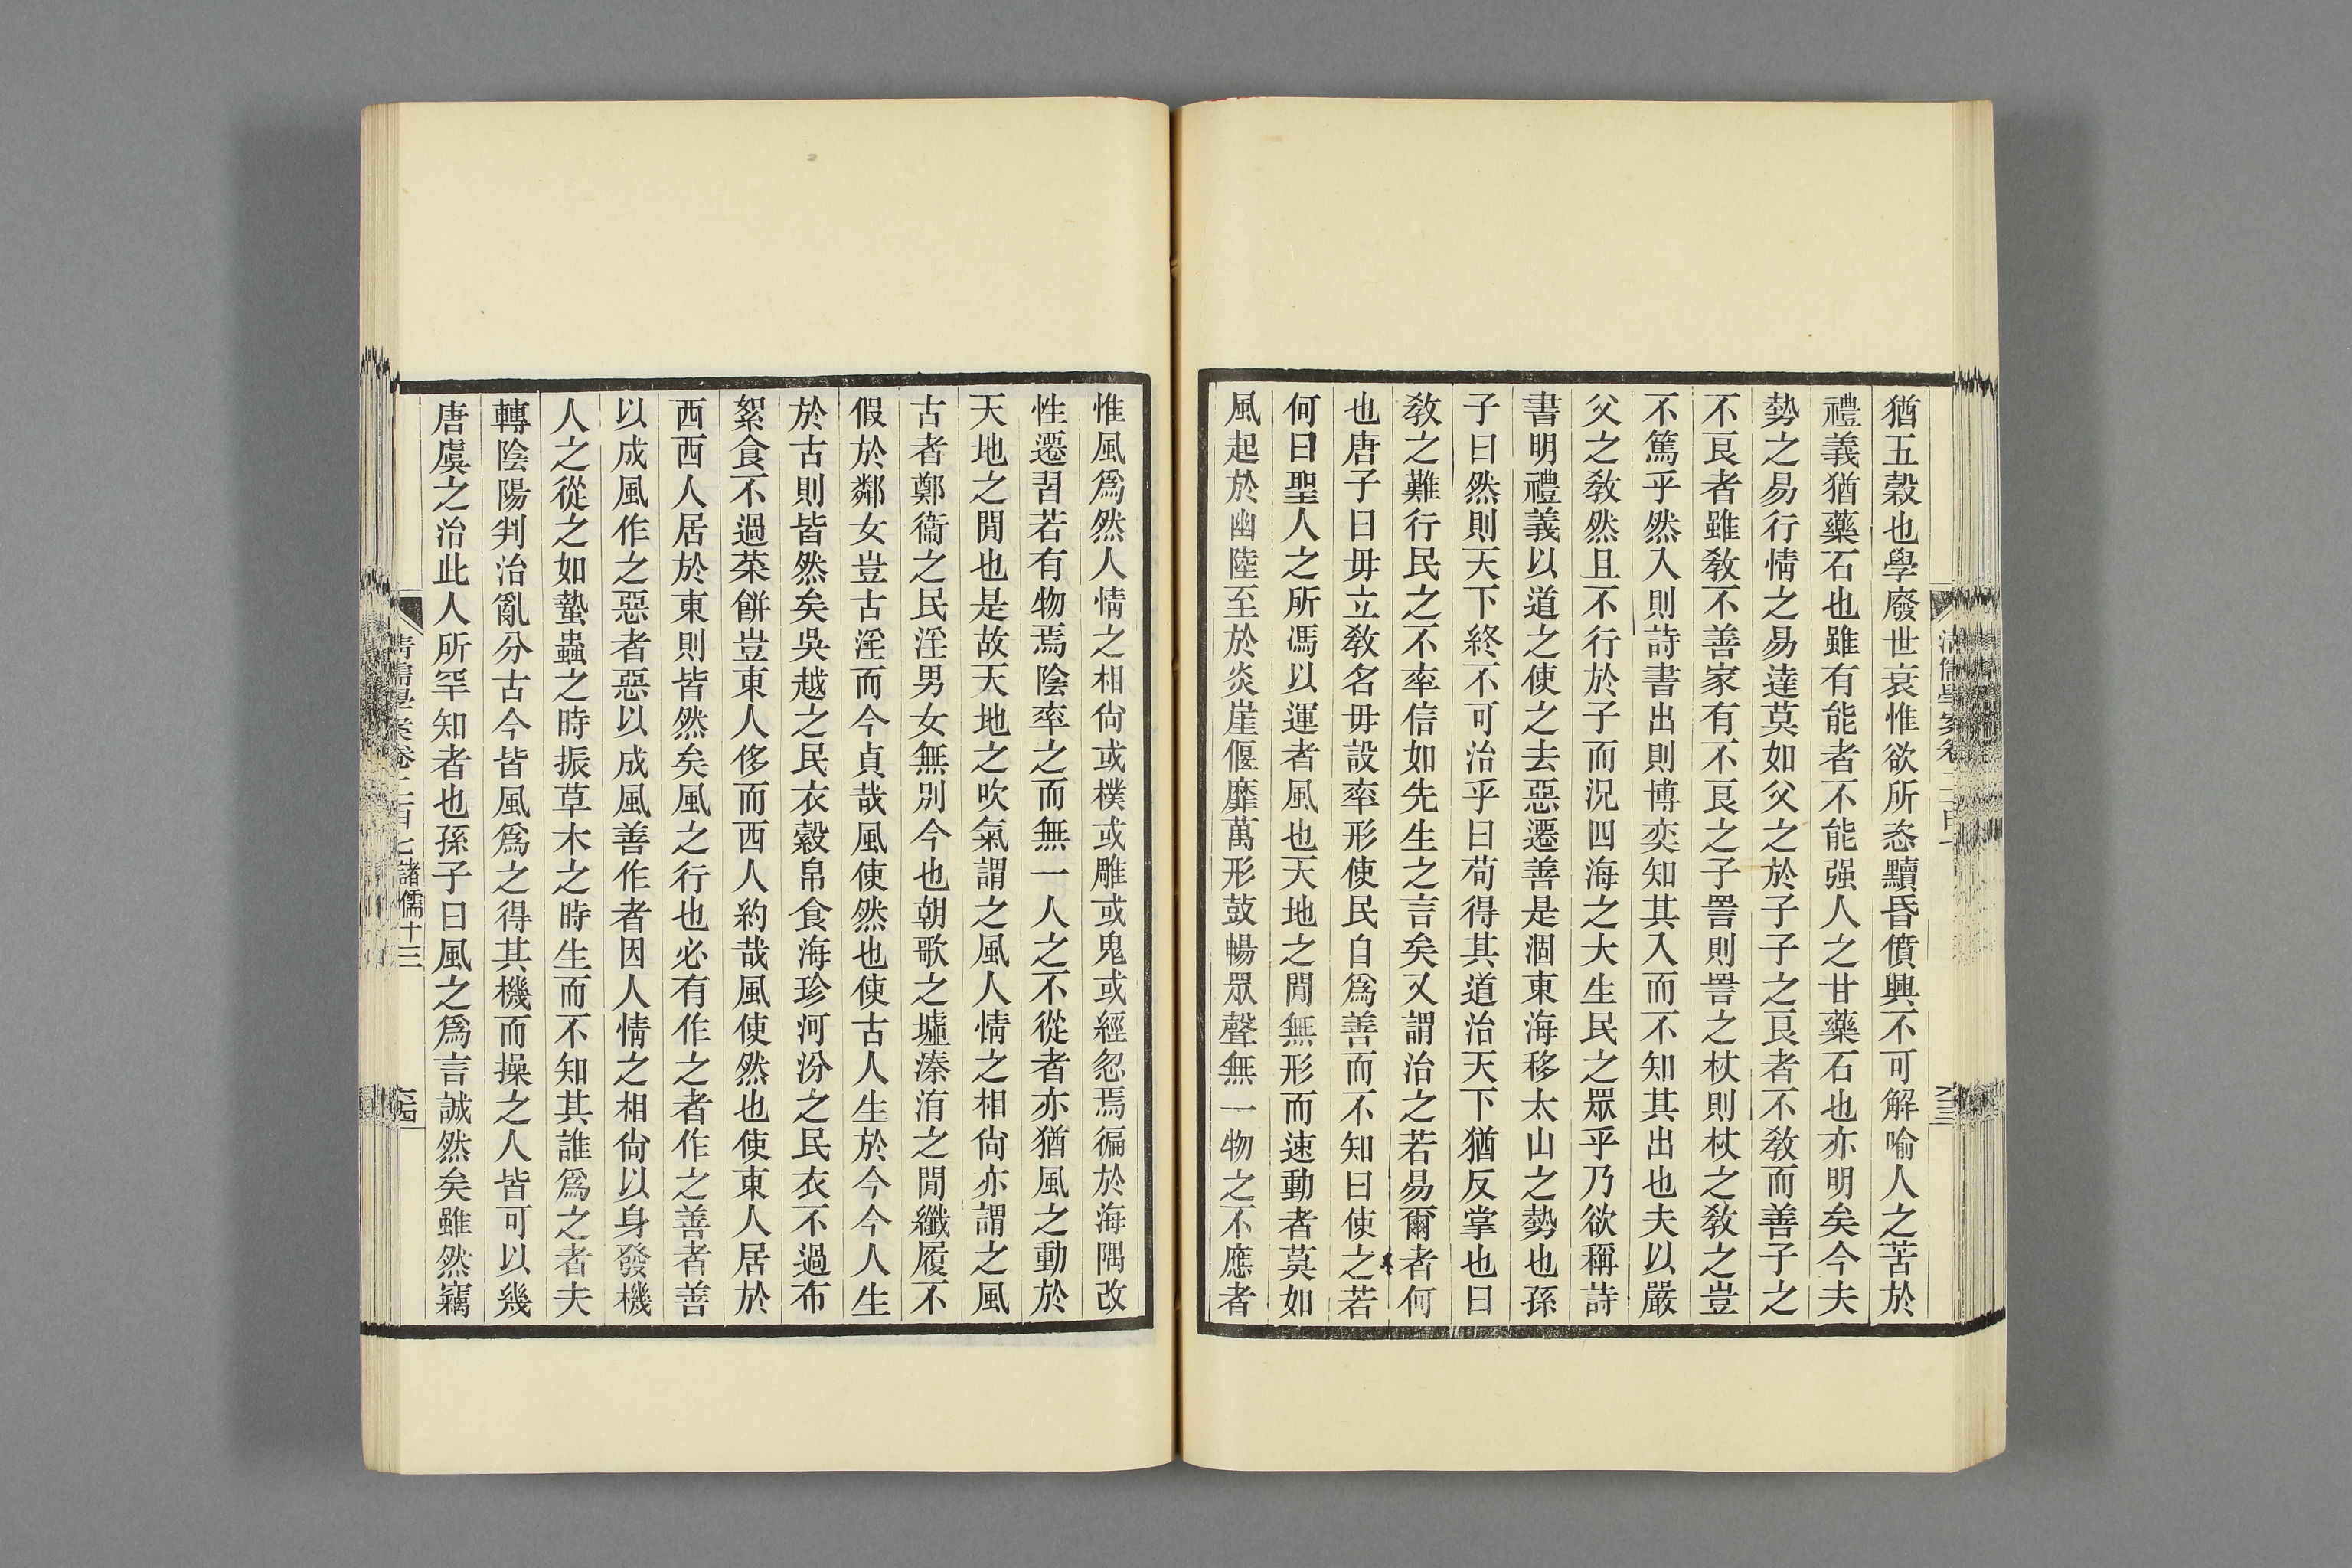 猶五穀也學廢世衰惟欲所恣黷昏僨興不可解喻人之苦於
禮義猶藥石也雖有能者不能强人之甘藥石也亦明矣今夫
勢之易行情之易達莫如父之於子子之良者不敎而善子之
不良者雖敎不善家有不良之子詈則詈之杖則杖之敎之豈
不篤乎然入則詩書出則博奕知其入而不知其出也夫以嚴
父之敎然且不行於子而況四海之大生民之眾乎乃欲稱詩
書明禮義以道之使之去惡遷善是涸東海移太山之勢也孫
子曰然則天下終不可治乎曰苟得其道治天下猶反掌也曰
敎之難行民之不率信如先生之言矣又謂治之若易爾者何
也唐子曰毋立敎名毋設率形使民自爲善而不知曰使之若
何曰聖人之所馮以運者風也天地之閒無形而速動者莫如
風起於幽陸至於炎崖偃靡萬形鼓暢眾聲無一物之不應者
清儒學案卷二百七
六三
惟風爲然人情之相尙或樸或雕或鬼或經忽焉徧於海隅改
性遷習若有物焉陰率之而無一人之不從者亦猶風之動於
天地之閒也是故天地之吹氣謂之風人情之相尙亦謂之風
古者鄭衞之民淫男女無別今也朝歌之墟溱洧之閒纖履不
假於鄰女豈古淫而今貞哉風使然也使古人生於今今人生
於古則皆然矣吳越之民衣縠帛食海珍河汾之民衣不過布
絮食不過菜餅豈東人侈而西人約哉風使然也使東人居於
西西人居於東則皆然矣風之行也必有作之者作之善者善
以成風作之惡者惡以成風善作者因人情之相尙以身發機
人之從之如蟄蟲之時振草木之時生而不知其誰爲之者夫
轉陰陽判治亂分古今皆風爲之得其機而操之人皆可以幾
唐虞之治此人所罕知者也孫子曰風之爲言誠然矣雖然竊
清儒學案卷二百七諸儒十三
六四